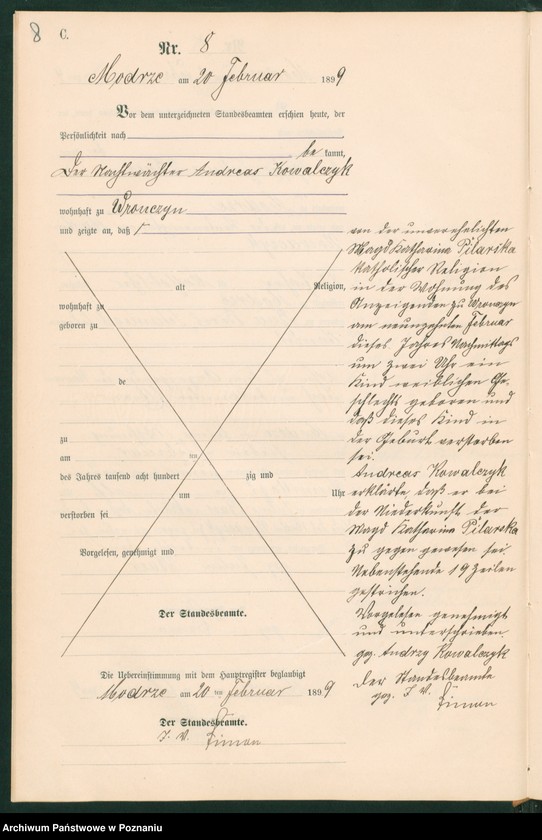 8
C.
Nr. 8
Modrze am 20 Februar 1899
Vor dem unterzeichneten Standesbeamten erschien heute, der
Persönlichkeit nach
be kannt,
Der Nachtwächter Andreas Kowalczyk
wohnhaft zu Wronczyn
und zeigte an, daß
alt Religion,
wohnhaft zu
geboren zu
de
zu
am ten
des Jahres tausend acht hundert zig und
um Uhr
verstorben sei
Vorgelesen, genehmigt und
Der Standesbeamte.
von der unverehelichten
Magd Katharina Pilarska
katholischer Religion
in der Wohnung des
Anzeigenden zu Wronczyn
am neunzehnten Februar
dieses Jahres Nachmittags
um zwei Uhr ein
Kind weiblichen Ge-
schlechts geboren und
daß dieses Kind in
der Geburt verstorben
sei.
Andreas Kowalczyk
erklärte daß er bei
der Niederkunft der
Magd Katharina Pilarska
zu gegen gewesen sei.
Nebenstehende 19 Zeilen
gestrichen.
Vorgelesen genehmigt
und unterschrieben
gez. Andrzy Kowalczyk
Der Standesbeamte
gez. I. V.
Die Uebereinstimmung mit dem Hauptregister beglaubigt
Modrze am 20 ten Februar 1899
Der Standesbeamte.
I. V.
Archiwum Państwowe w Poznaniu